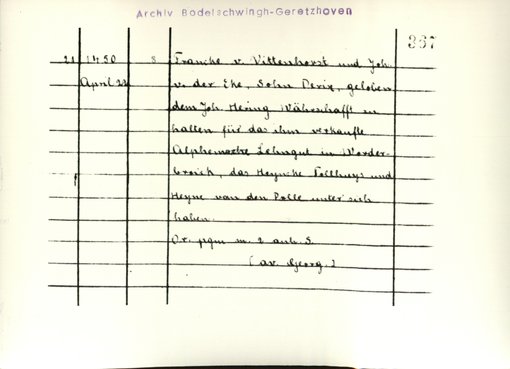 Archiv Bodelschwingh-Geretzhoven
367
21 1450 8 Francke v. Vittenhorst und Joh.
April 23 v. der Ehe, Sohn Derix, geloben
dem Joh. Hering Währschafft zu
halten für das ihm verkaufte
Lehngut in Norder-
, das Heyncke und
Heyne van den Polle unter sich
haben.
Or. pgm m. 2 anh. S.
(av. Georg.)